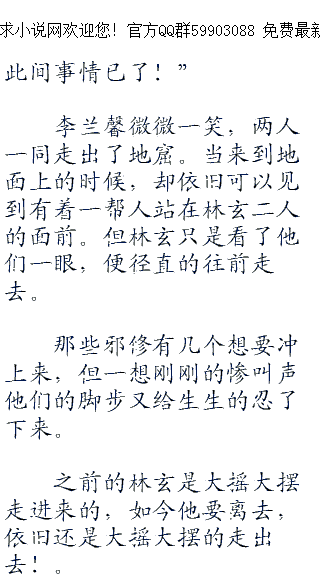 求小说网欢迎您！官方QQ群59903088 免费最新
此间事情已了！”
李兰馨微微一笑，两人
一同走出了地窟。当来到地
面上的时候，却依旧可以见
到有着一帮人站在林玄二人
的面前。但林玄只是看了他
们一眼，便径直的往前走
去。
那些邪修有几个想要冲
上来，但一想刚刚的惨叫声
他们的脚步又给生生的忍了
下来。
之前的林玄是大摇大摆
走进来的，如今他要离去，
依旧还是大摇大摆的走出
去！。